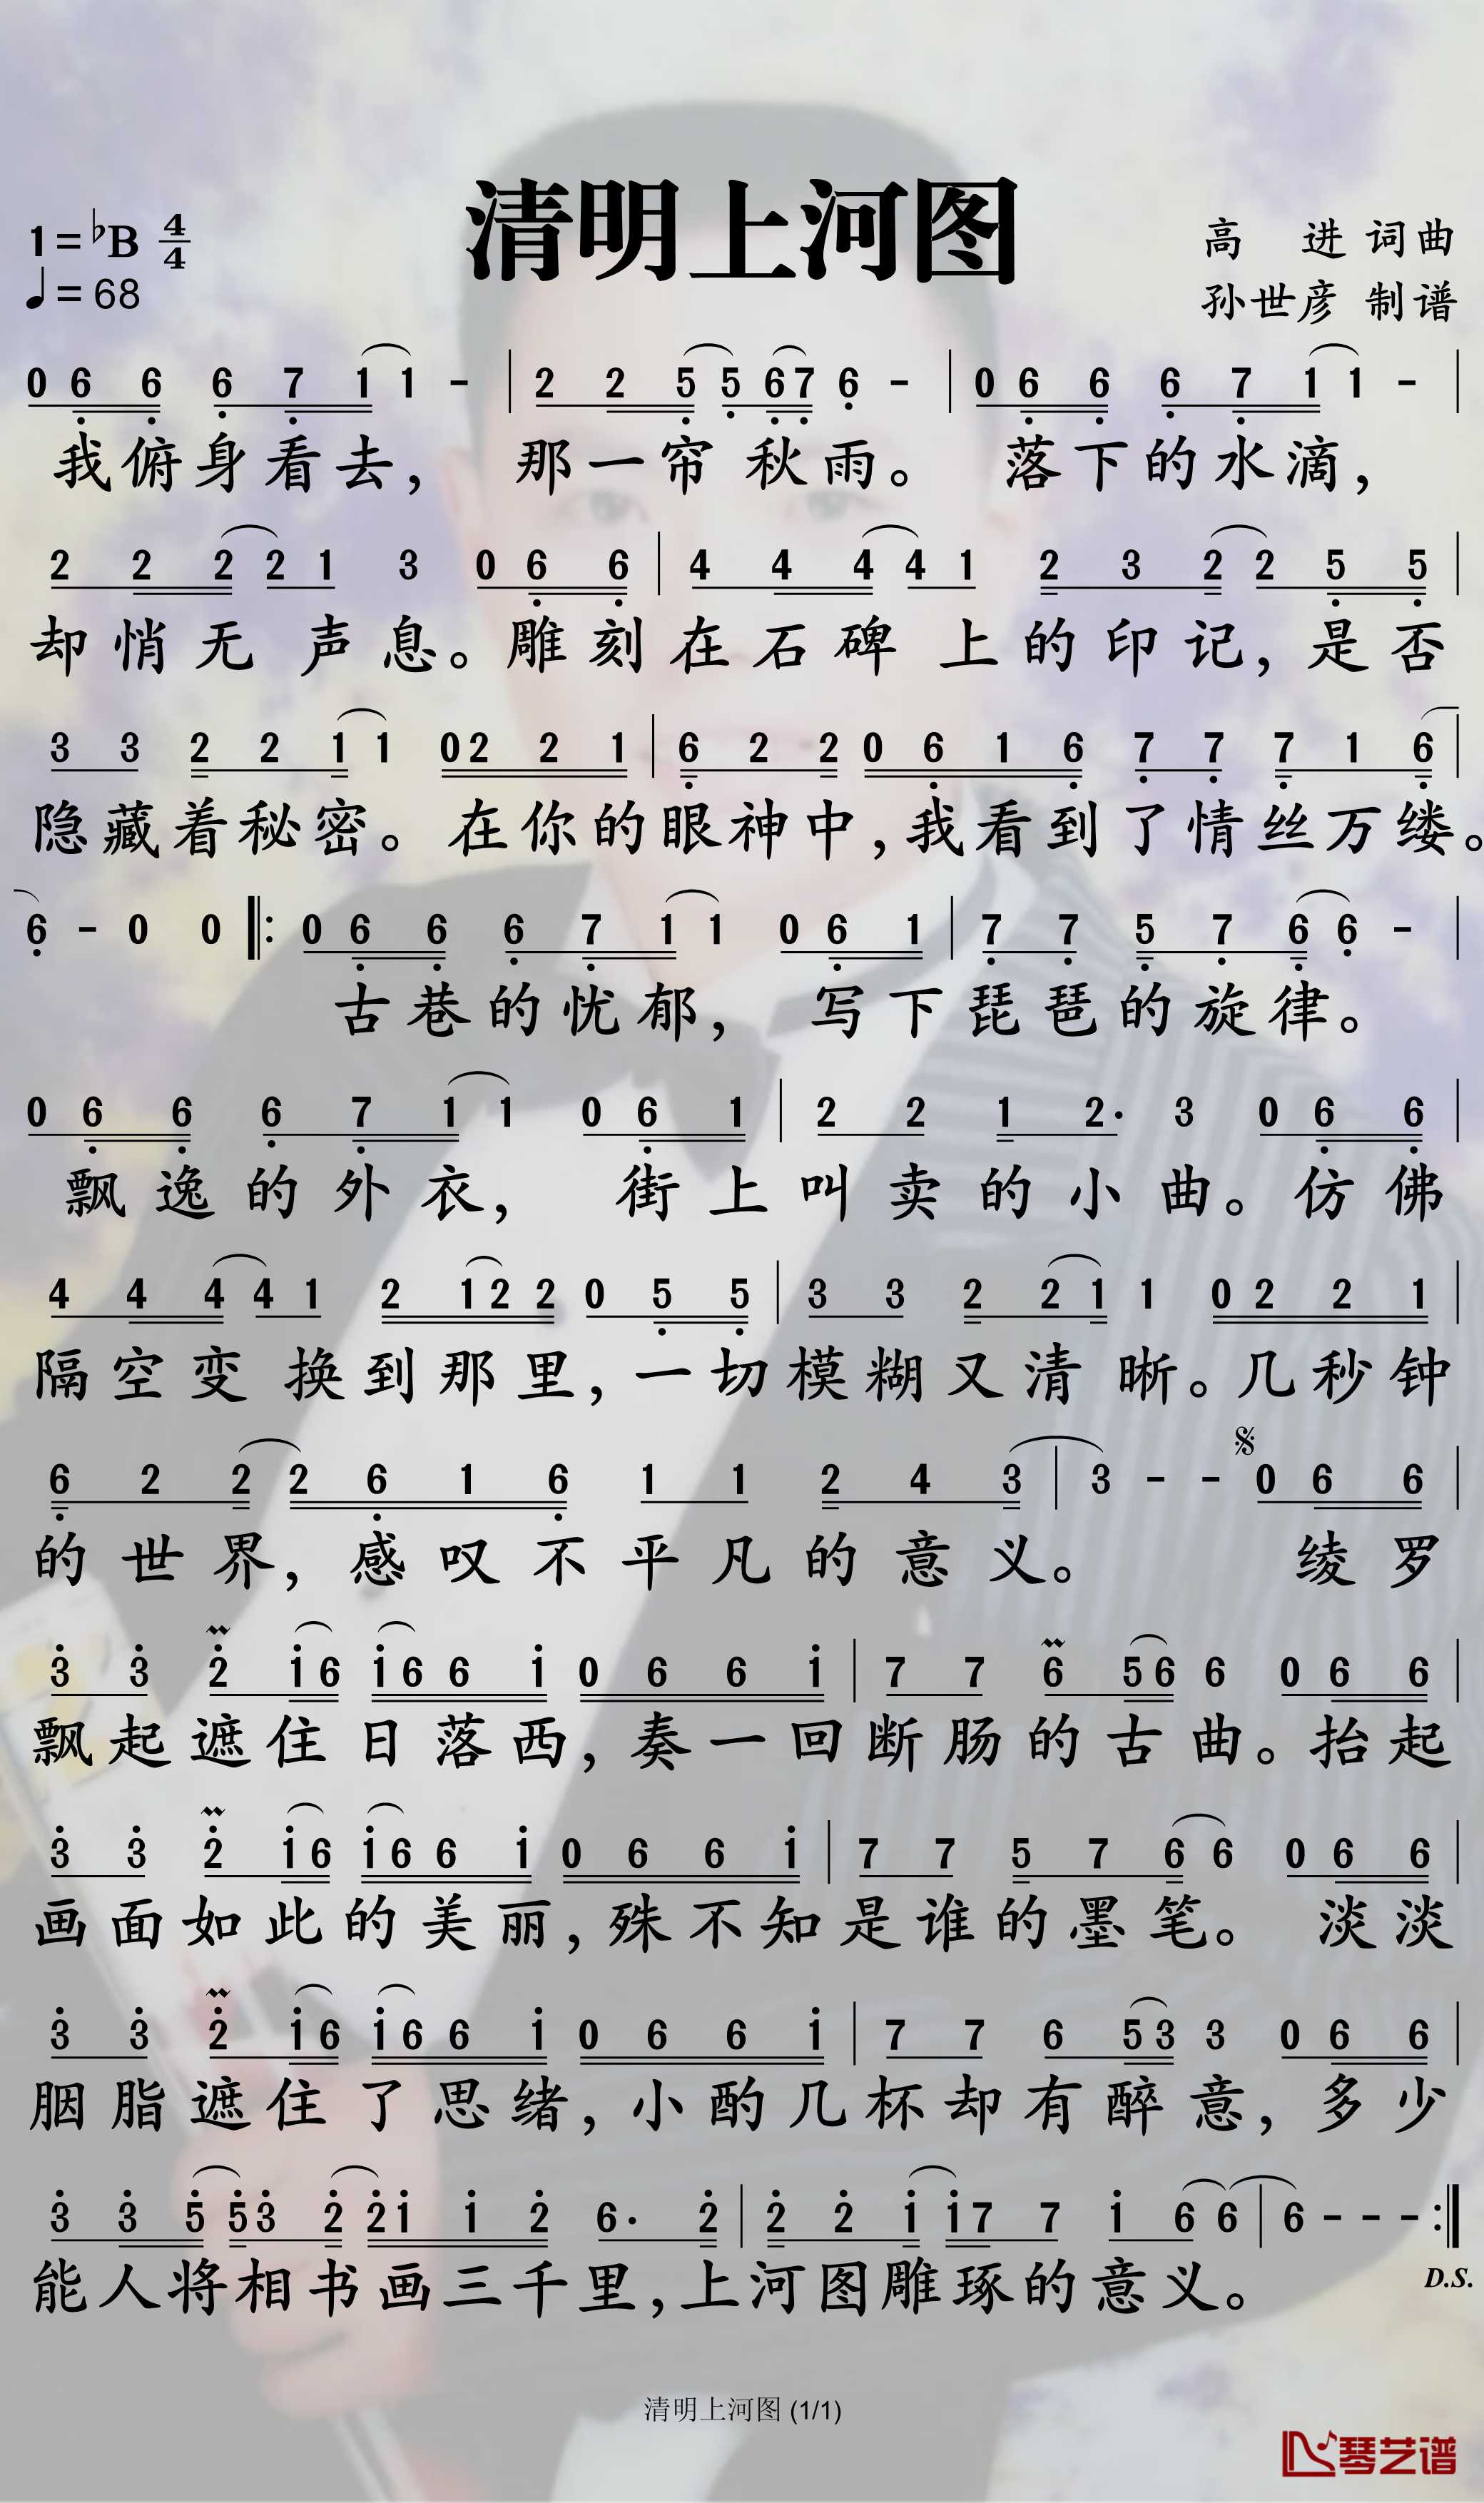 清明上河图
1=♭B 4/4
♩=68
高 进 词曲
孙世彦 制谱
0 6 6 6 7 1 1 - | 2 2 5 5 6 7 6 - | 0 6 6 6 7 1 1 - |
我俯身看去， 那一帘秋雨。 落下的水滴，
2 2 2 2 1 3 0 6 6 | 4 4 4 4 1 2 3 2 2 5 5 |
却悄无声息。雕刻在石碑上的印记，是否
3 3 2 2 1 1 0 2 2 1 | 6 2 2 0 6 1 6 7 7 7 1 6 |
隐藏着秘密。在你的眼神中，我看到了情丝万缕。
6 - 0 0 ‖: 0 6 6 6 7 1 1 0 6 1 | 7 7 5 7 6 6 - |
古巷的忧郁， 写下琵琶的旋律。
0 6 6 6 7 1 1 0 6 1 | 2 2 1 2· 3 0 6 6 |
飘逸的外衣， 街上叫卖的小曲。仿佛
4 4 4 4 1 2 1 2 2 0 5 5 | 3 3 2 2 1 1 0 2 2 1 |
隔空变换到那里，一切模糊又清晰。几秒钟
6 2 2 2 6 1 6 1 1 2 4 3 | 3 - - 𝄋 0 6 6 |
的世界，感叹不平凡的意义。 绫罗
3 3 2 1 6 1 6 6 1 0 6 6 1 | 7 7 6 5 6 6 0 6 6 |
飘起遮住日落西，奏一回断肠的古曲。抬起
3 3 2 1 6 1 6 6 1 0 6 6 1 | 7 7 5 7 6 6 0 6 6 |
画面如此的美丽，殊不知是谁的墨笔。 淡淡
3 3 2 1 6 1 6 6 1 0 6 6 1 | 7 7 6 5 3 3 0 6 6 |
胭脂遮住了思绪，小酌几杯却有醉意，多少
3 3 5 5 3 2 2 1 1 2 6· 2 | 2 2 1 1 7 7 1 6 6 | 6 - - - :‖
D.S.
能人将相书画三千里，上河图雕琢的意义。
清明上河图 (1/1)
琴艺谱